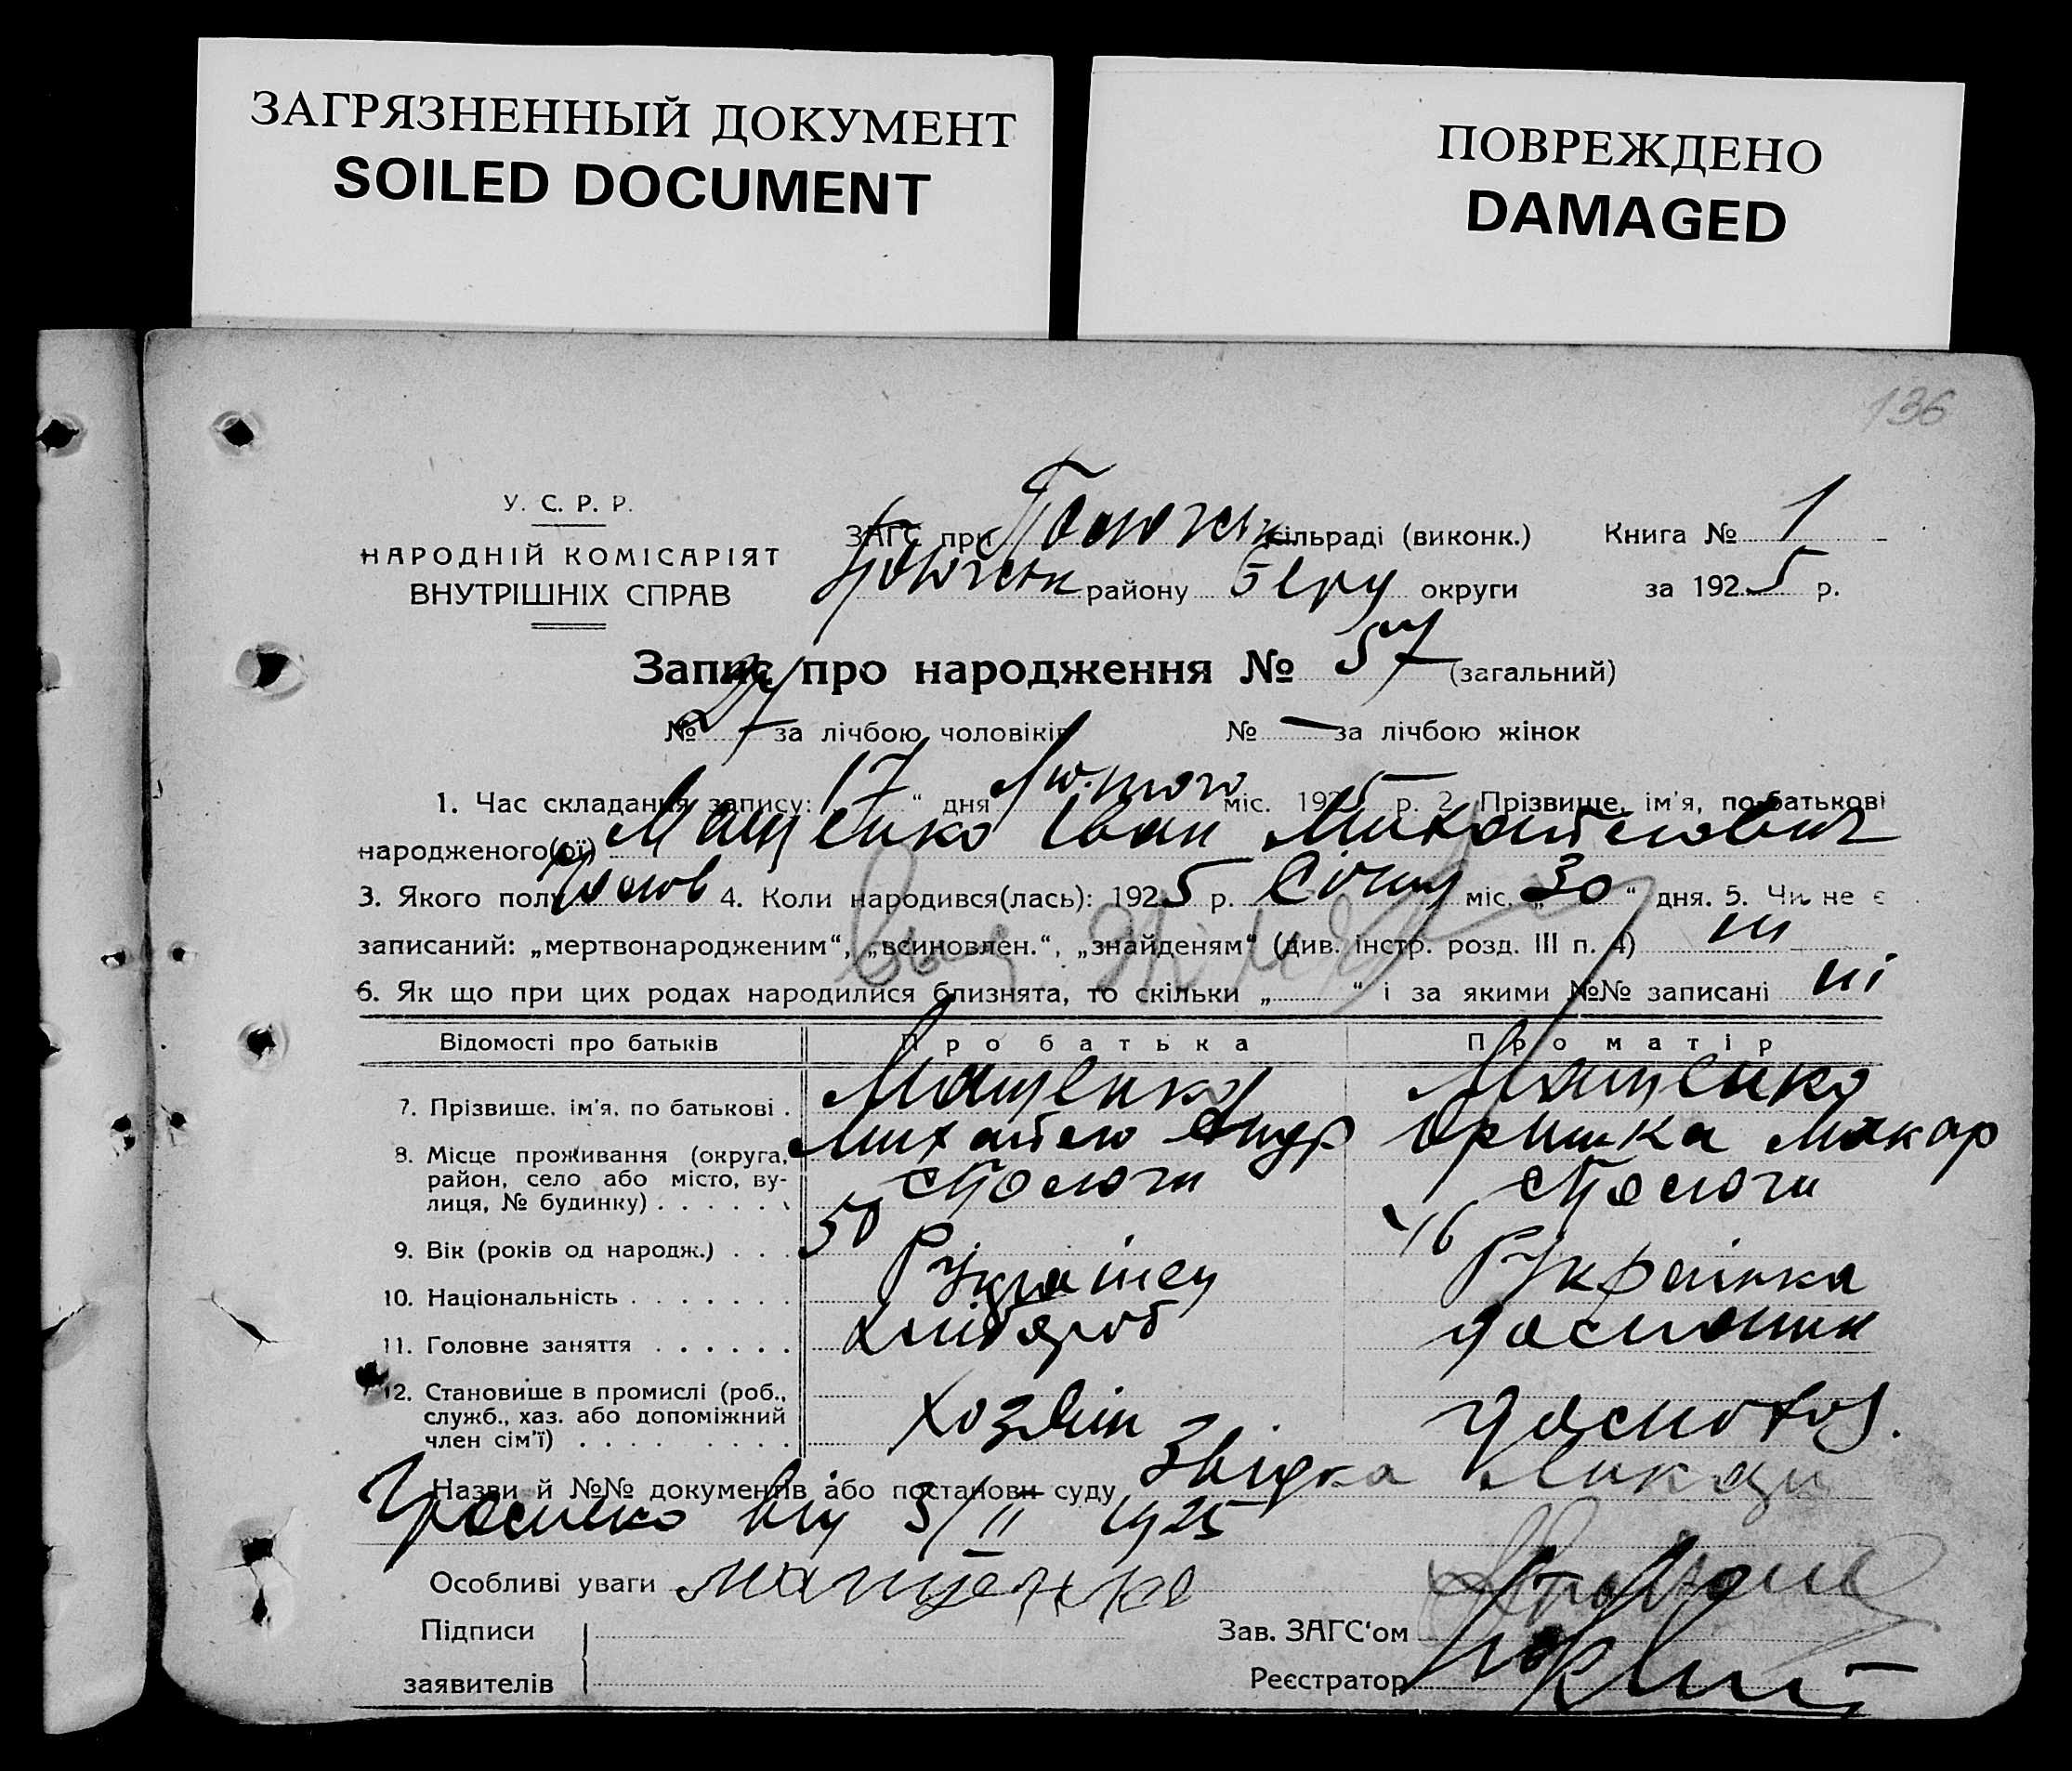 ЗАГРЯЗНЕННЫЙ ДОКУМЕНТ
SOILED DOCUMENT
ПОВРЕЖДЕНО
DAMAGED
136
У. С. Р. Р.
НАРОДНІЙ КОМІСАРІЯТ
ВНУТРІШНІХ СПРАВ
ЗАГС при сільраді (виконк.) Книга № 1
району округи за 1925 р.
Запис про народження № 57 (загальний)
№ 27 за лічбою чоловіків № — за лічбою жінок
1. Час складання запису: 17 “ дня Лютого міс. 1925 р. 2. Прізвище, ім'я, по батькові
народженого(ої) Мащенко Іван Михайлович
3. Якого полу чолов 4. Коли народився(лась): 1925 р. Січня міс. „30“ дня. 5. Чи не є
записаний: „мертвонародженим“, „всиновлен.“, „знайденям“ (див. інстр. розд. III п. 4) ні
6. Як що при цих родах народилися близнята, то скільки „ “ і за якими №№ записані ні
Відомості про батьків Про батька Про матір
7. Прізвище, ім'я, по батькові . Мащенко Мащенко
Михайло Андр Оришка Макар
8. Місце проживання (округа,
район, село або місто, ву-
лиця, № будинку) . . . . . .
9. Вік (років од народж.) . . . 50 46
10. Національність . . . . . . . Українец Українка
11. Головне заняття . . . . . . хлібороб
12. Становище в промислі (роб.,
служб., хаз. або допоміжний
член сім'ї) . . . . . . . . . хозяін
Назви й №№ документів або постанови суду
від 3/II 1925
Особливі уваги Мащенко
Підписи Зав. ЗАГС'ом
заявителів Реєстратор